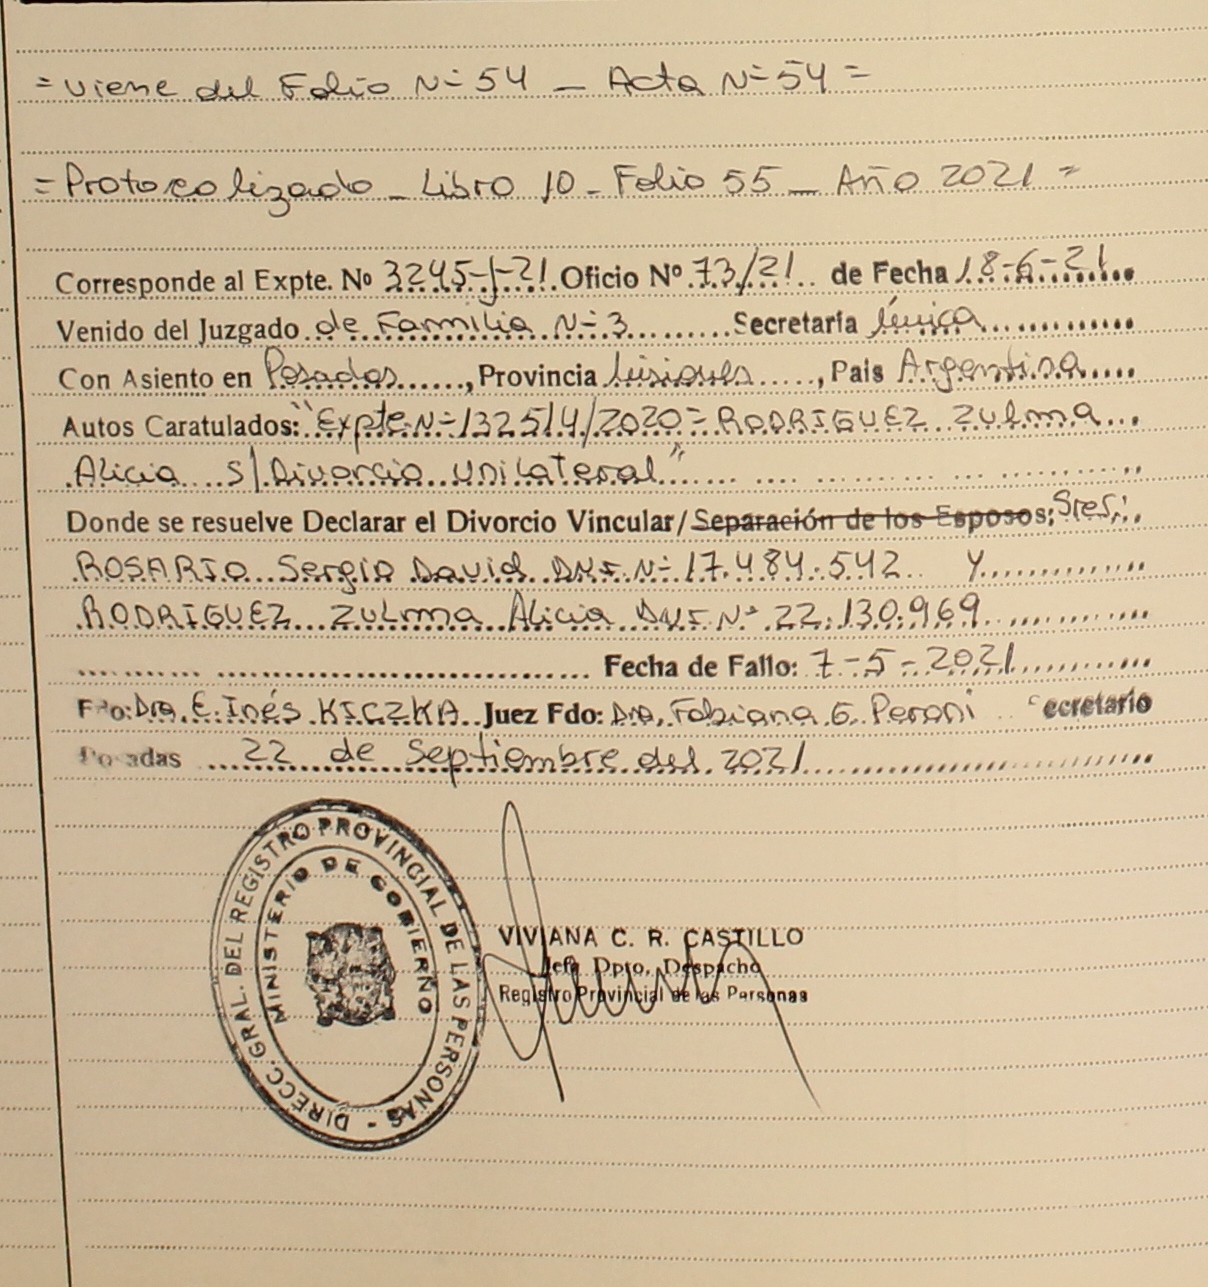 = Viene del Folio Nº 54 _ Acta Nº 54 =
= Protocolizado _ Libro 10 _ Folio 55 _ Año 2021 =
Corresponde al Expte. Nº 3245-J-21. Oficio Nº 73/21 de Fecha 18-6-21
Venido del Juzgado de Familia Nº 3 Secretaría única
Con Asiento en Posadas, Provincia Misiones, País Argentina
Autos Caratulados: "Expte Nº 132514/2020 = RODRIGUEZ Zulma
Alicia s/ Divorcio unilateral"
Donde se resuelve Declarar el Divorcio Vincular/Separación de los Esposos; Sres:
ROSARIO Sergio David DNI Nº 17.484.542 y
RODRIGUEZ Zulma Alicia DNI Nº 22.130.969
Fecha de Fallo: 7-5-2021
Fdo: Dra. E. Inés KICZKA Juez Fdo: Dra. Fabiana G. Peroni Secretario
Posadas 22 de Septiembre del 2021
DIRECC. GRAL. DEL REGISTRO PROVINCIAL DE LAS PERSONAS -
MINISTERIO DE GOBIERNO
VIVIANA C. R. CASTILLO
Jefa Dpto. Despacho
Registro Provincial de las Personas